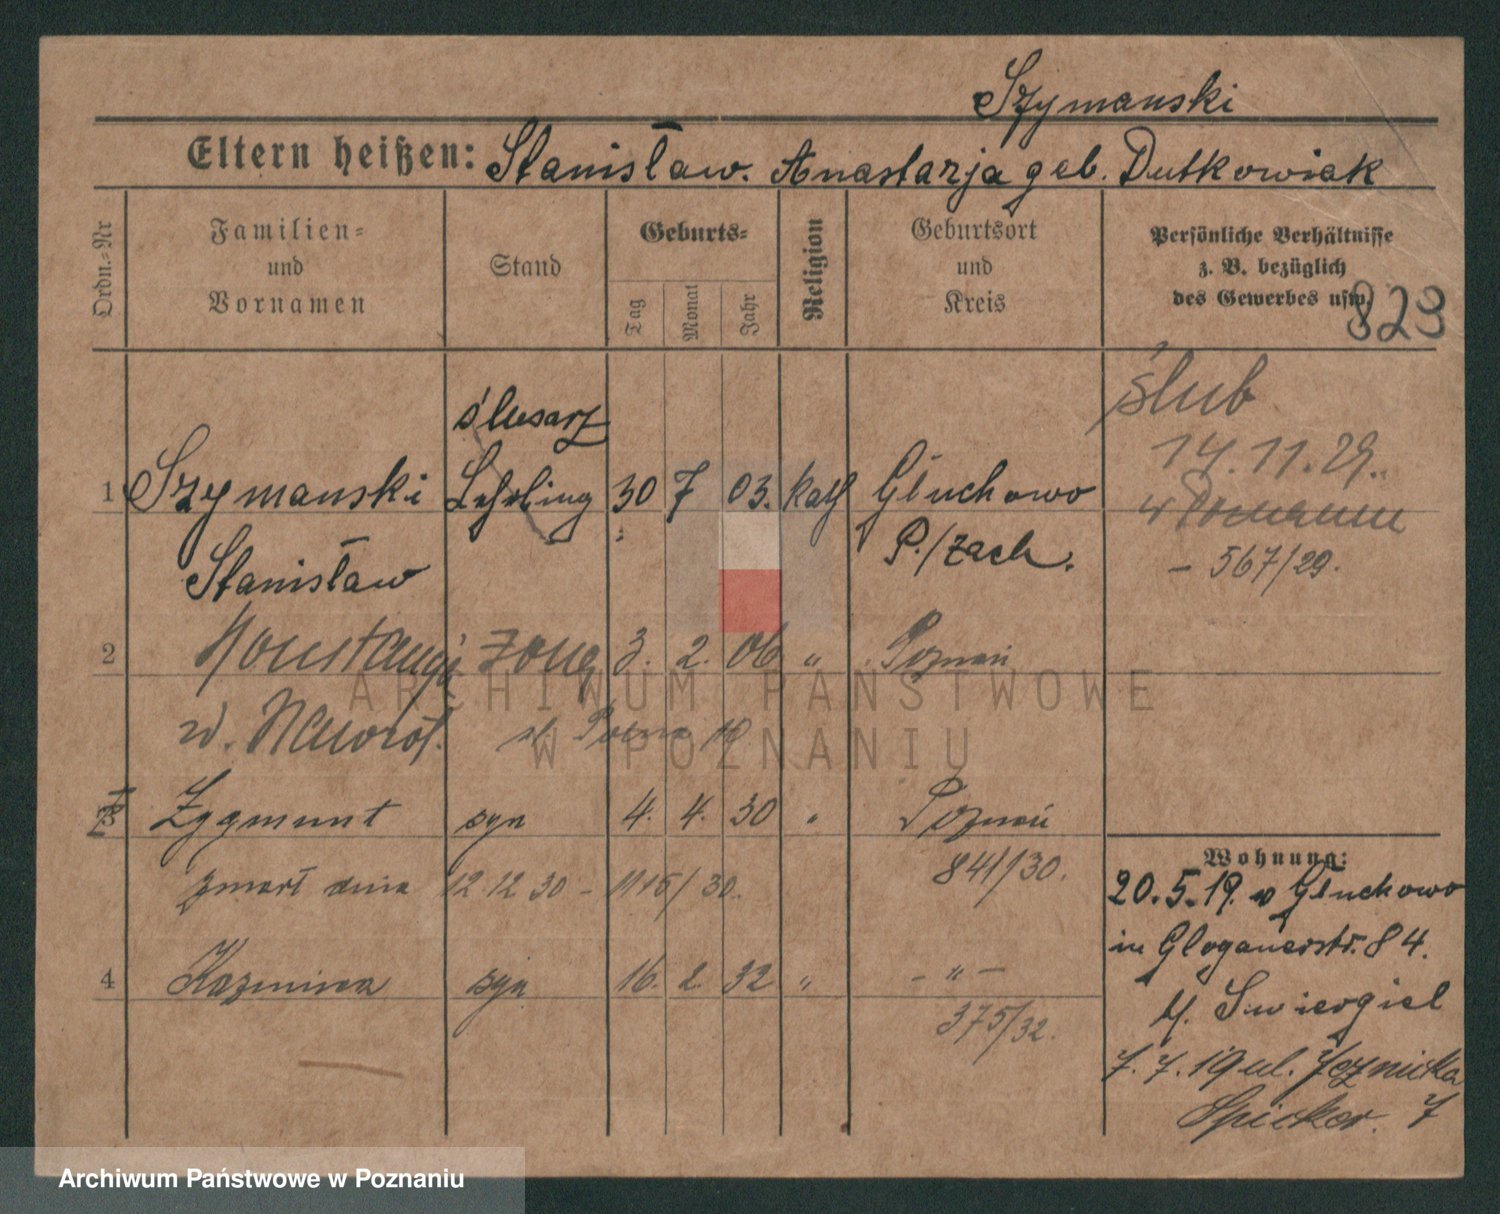 Szymanski
Eltern heißen: Stanisław. Anastazja geb. Dutkowiak
Ordn.-Nr
Familien-
und
Vornamen
Stand
Geburts-
Tag
Monat
Jahr
Religion
Geburtsort
und
Kreis
Persönliche Verhältnisse
z. B. bezüglich
des Gewerbes usw.
823
ślub
14.11.29.
w Poznaniu
- 567/29.
ślusarz
1 Szymanski Lehrling 30 7 03. kath Głuchowo
Stanisław P./zach.
2 Konstancja żona 3. 2. 06 " Poznań
w.
3 Zygmunt syn 4. 4. 30 " Poznań
841/30.
zmarł dnia 12 12 30 - 1115/30.
4 Kazimierz syn 16. 2. 32 " - " -
375/32.
Wohnung:
20.5.19. v Głuchowo
in Glogauerstr. 84.
Swiergiel
7.7.19 ul.
7
ARCHIWUM PAŃSTWOWE
W POZNANIU
Archiwum Państwowe w Poznaniu